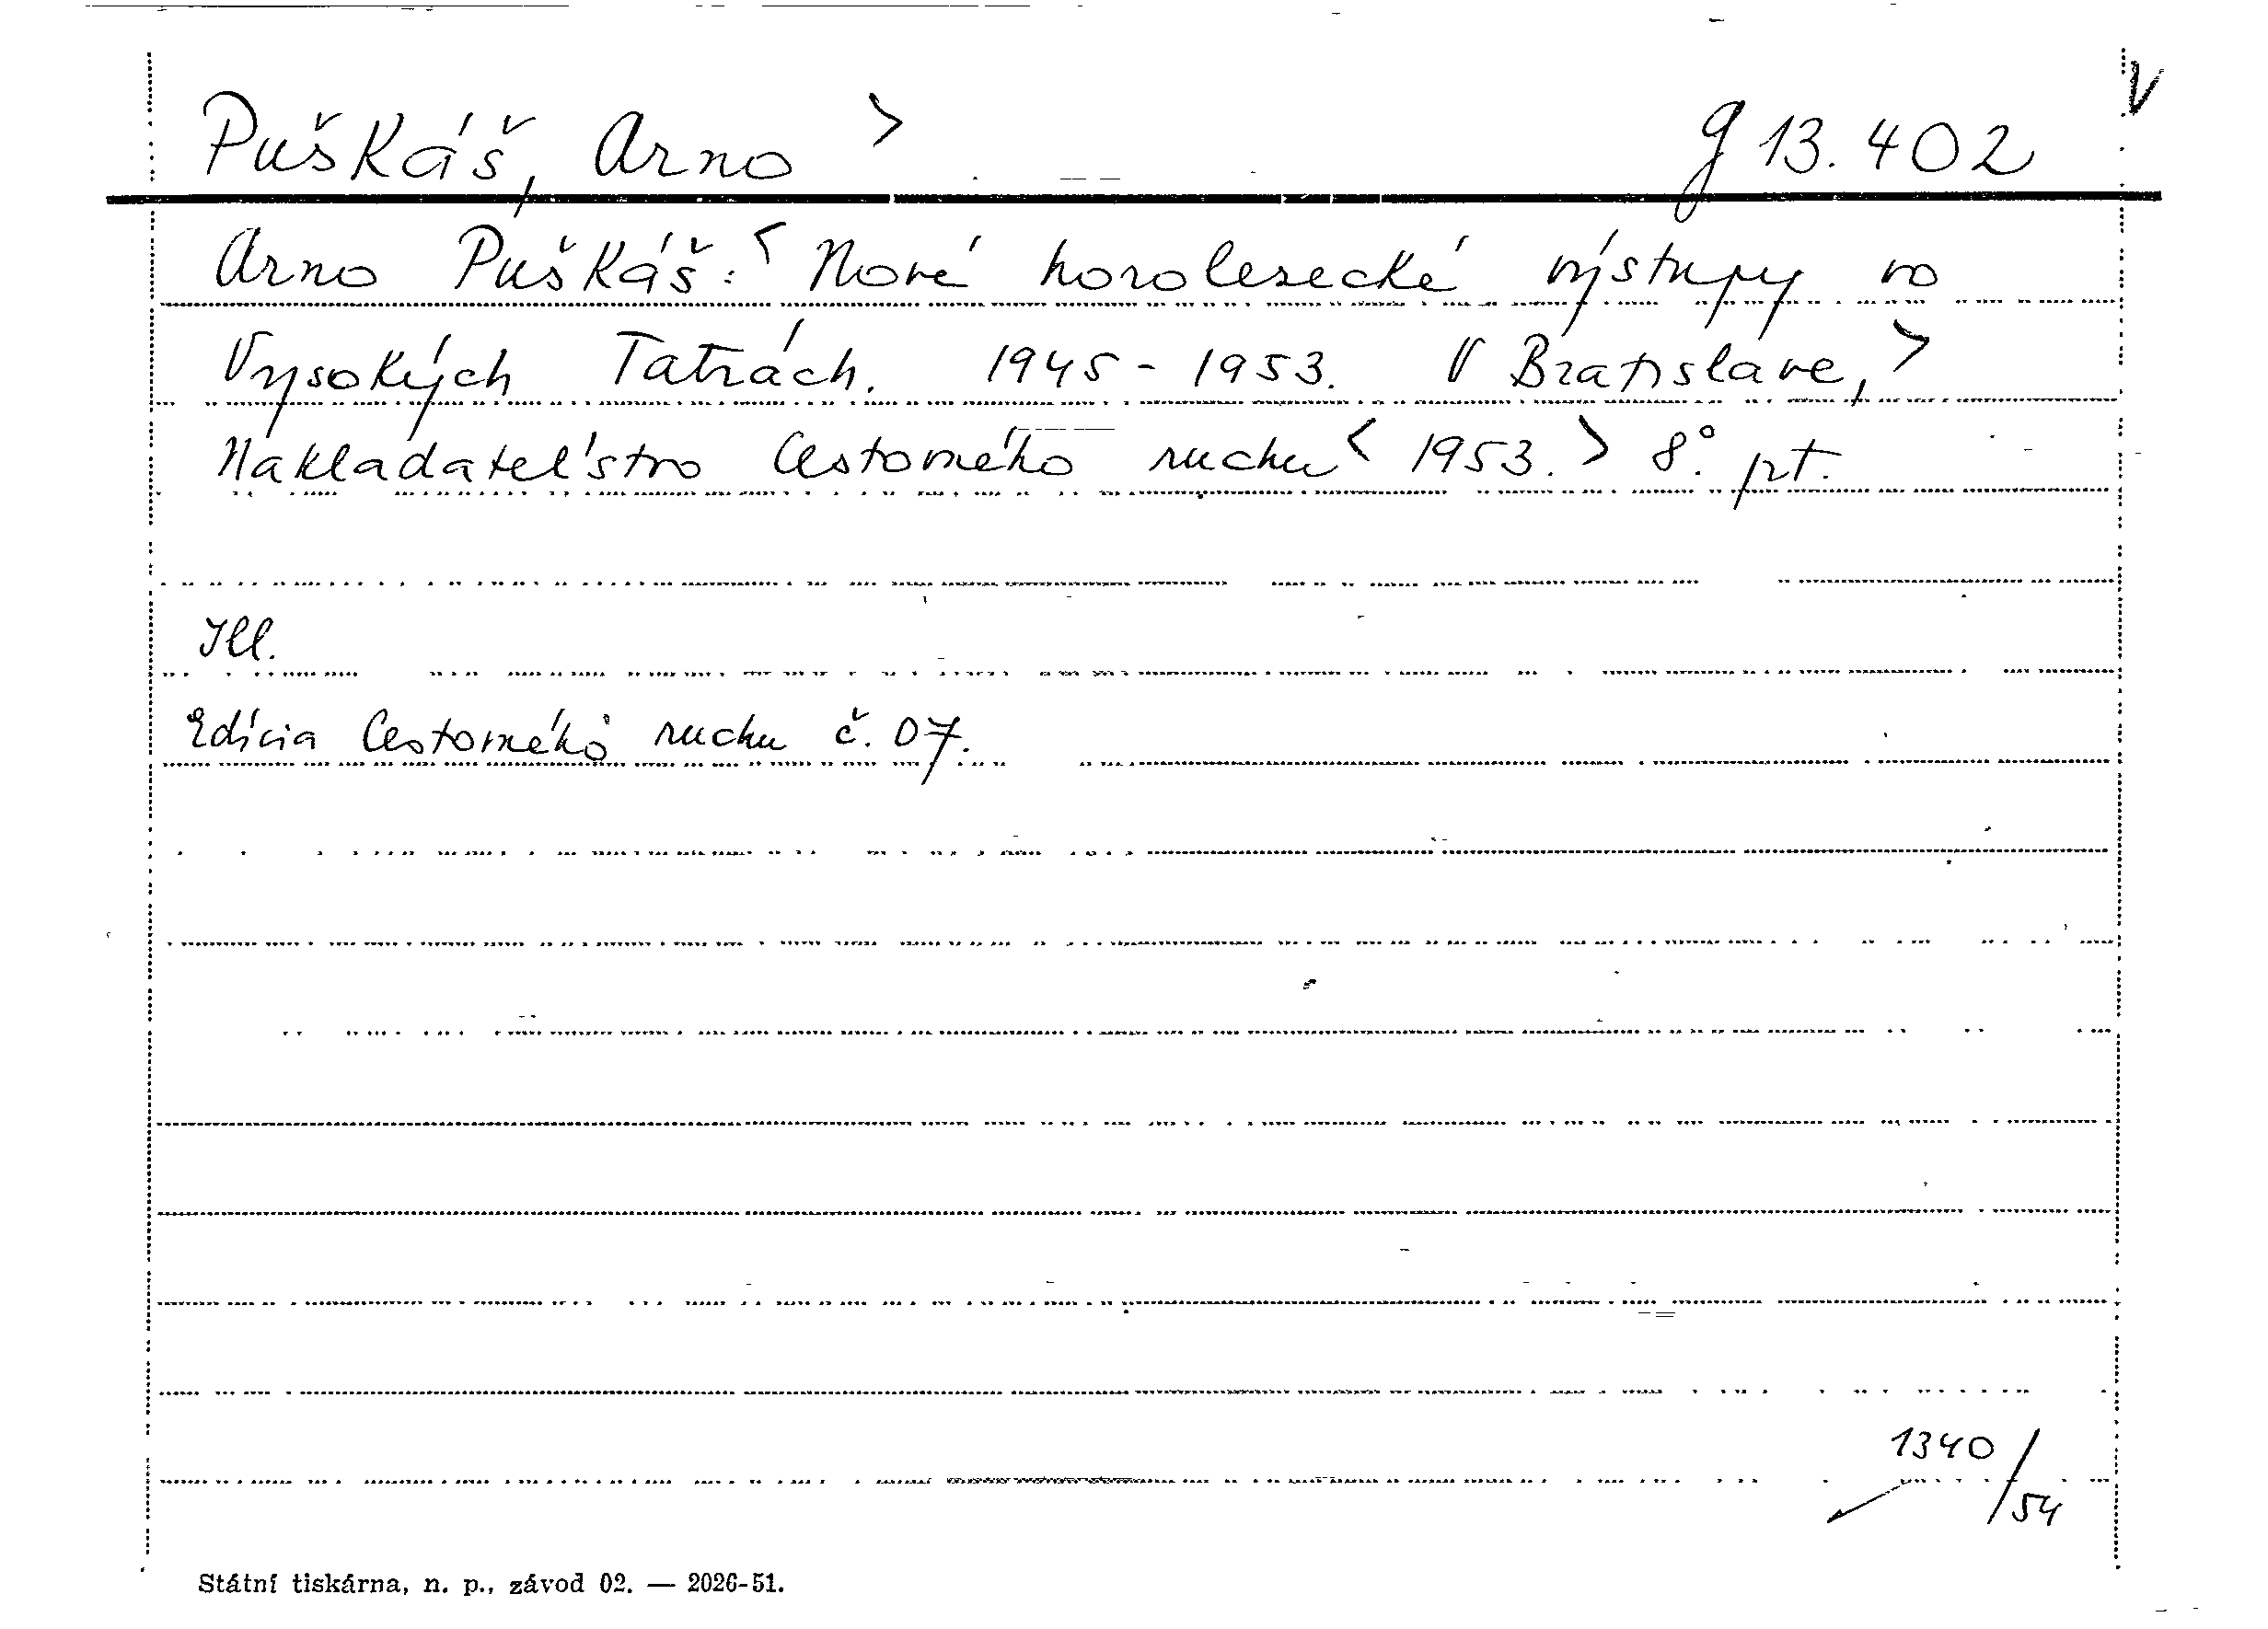 V
Puškáš, Arno > g 13.402
Arno Puškáš: < Nové horolezecké výstupy vo
Vysokých Tatrách. 1945 - 1953. V Bratislave, >
Nakladateľstvo Cestovného ruchu < 1953. > 8°. pt.
Ill.
Edícia Cestovného ruchu č. 07.
1340/54
Státní tiskárna, n. p., závod 02. — 2026-51.